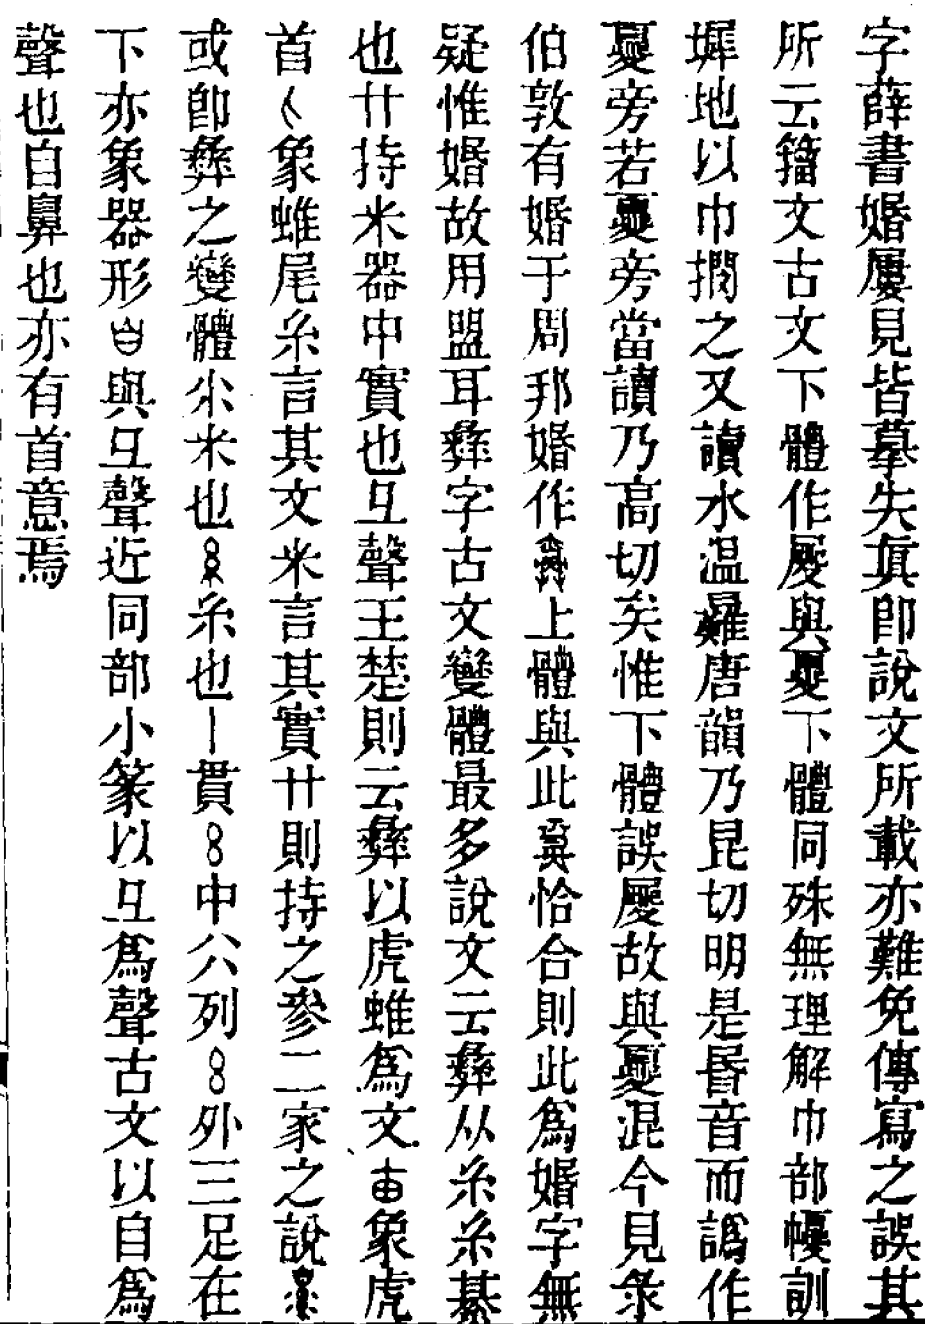 字薛書婚屢見皆摹失真卽說文所載亦難免傳寫之誤其
所云籒文古文下體作㚆與夒下體同殊無理解巾部㡓訓
墀地以巾㨉之又讀水温㬮唐韻乃昆切明是昬音而譌作
夒旁若夒旁當讀乃高切矣惟下體誤㚆故與夒混今見彔
伯敦有婚于周邦婚作上體與此恰合則此為婚字無
疑惟婚故用盟耳彝字古文變體最多說文云彝从糸糸綦
也廾持米器中實也彑聲王楚則云彝以虎蜼為文象虎
首象蜼尾糸言其文米言其實廾則持之參二家之說
或卽彝之變體米也糸也丨貫8中八列8外三足在
下亦象器形與彑聲近同部小篆以彑為聲古文以自為
聲也自鼻也亦有首意焉